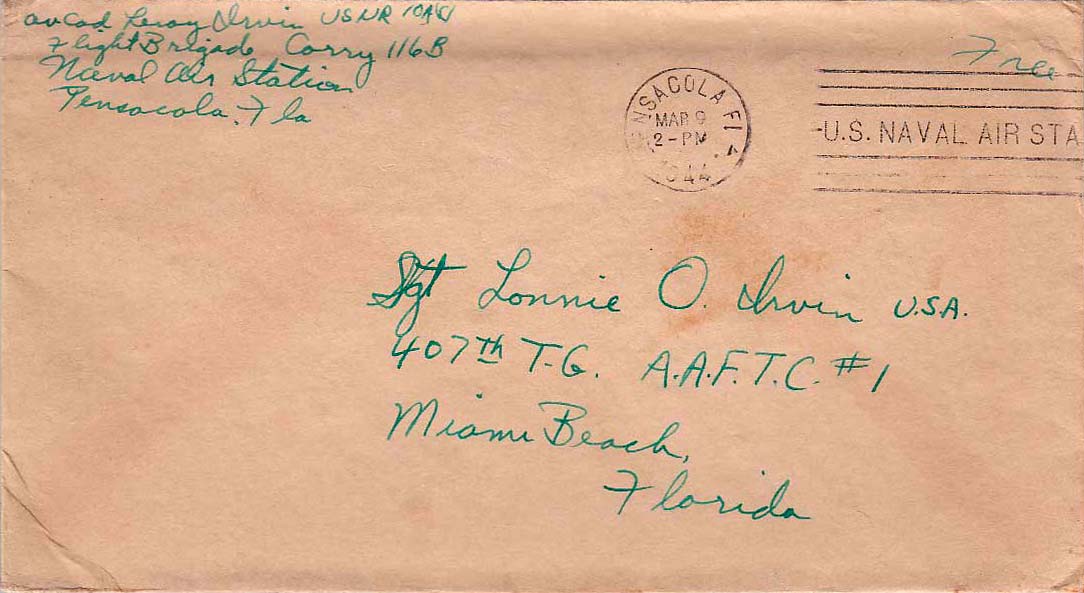 Av Cad Leroy Irvin USNR
Flight Brigade Corry 116B
Naval Air Station
Pensacola, Fla
Free
PENSACOLA FLA.
MAR 9
2-PM
1944
U.S. NAVAL AIR STA
Sgt Lonnie O. Irvin U.S.A.
407th T.G. A.A.F.T.C. #1
Miami Beach,
Florida